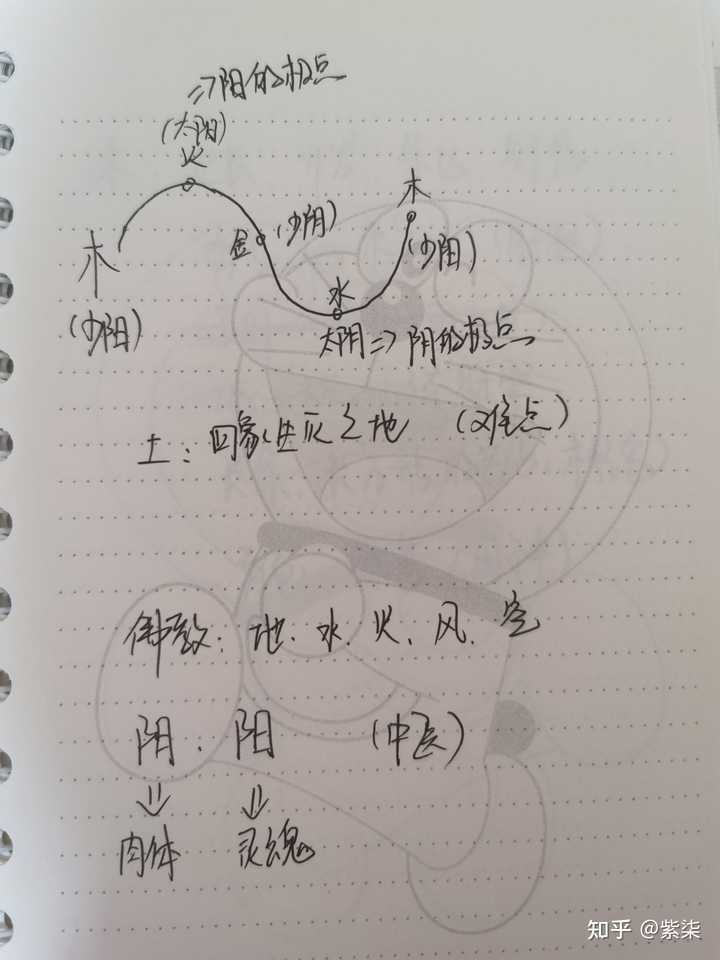 =>阳的极点
(太阳)
火
木
金 (少阴)
木
(少阳)
水
(少阳)
太阴=>阴的极点
土:四象生灭之地 (难点)
佛教:地、水、火、风、空
阴、阳 (中医)
肉体 灵魂
知乎 @紫柒